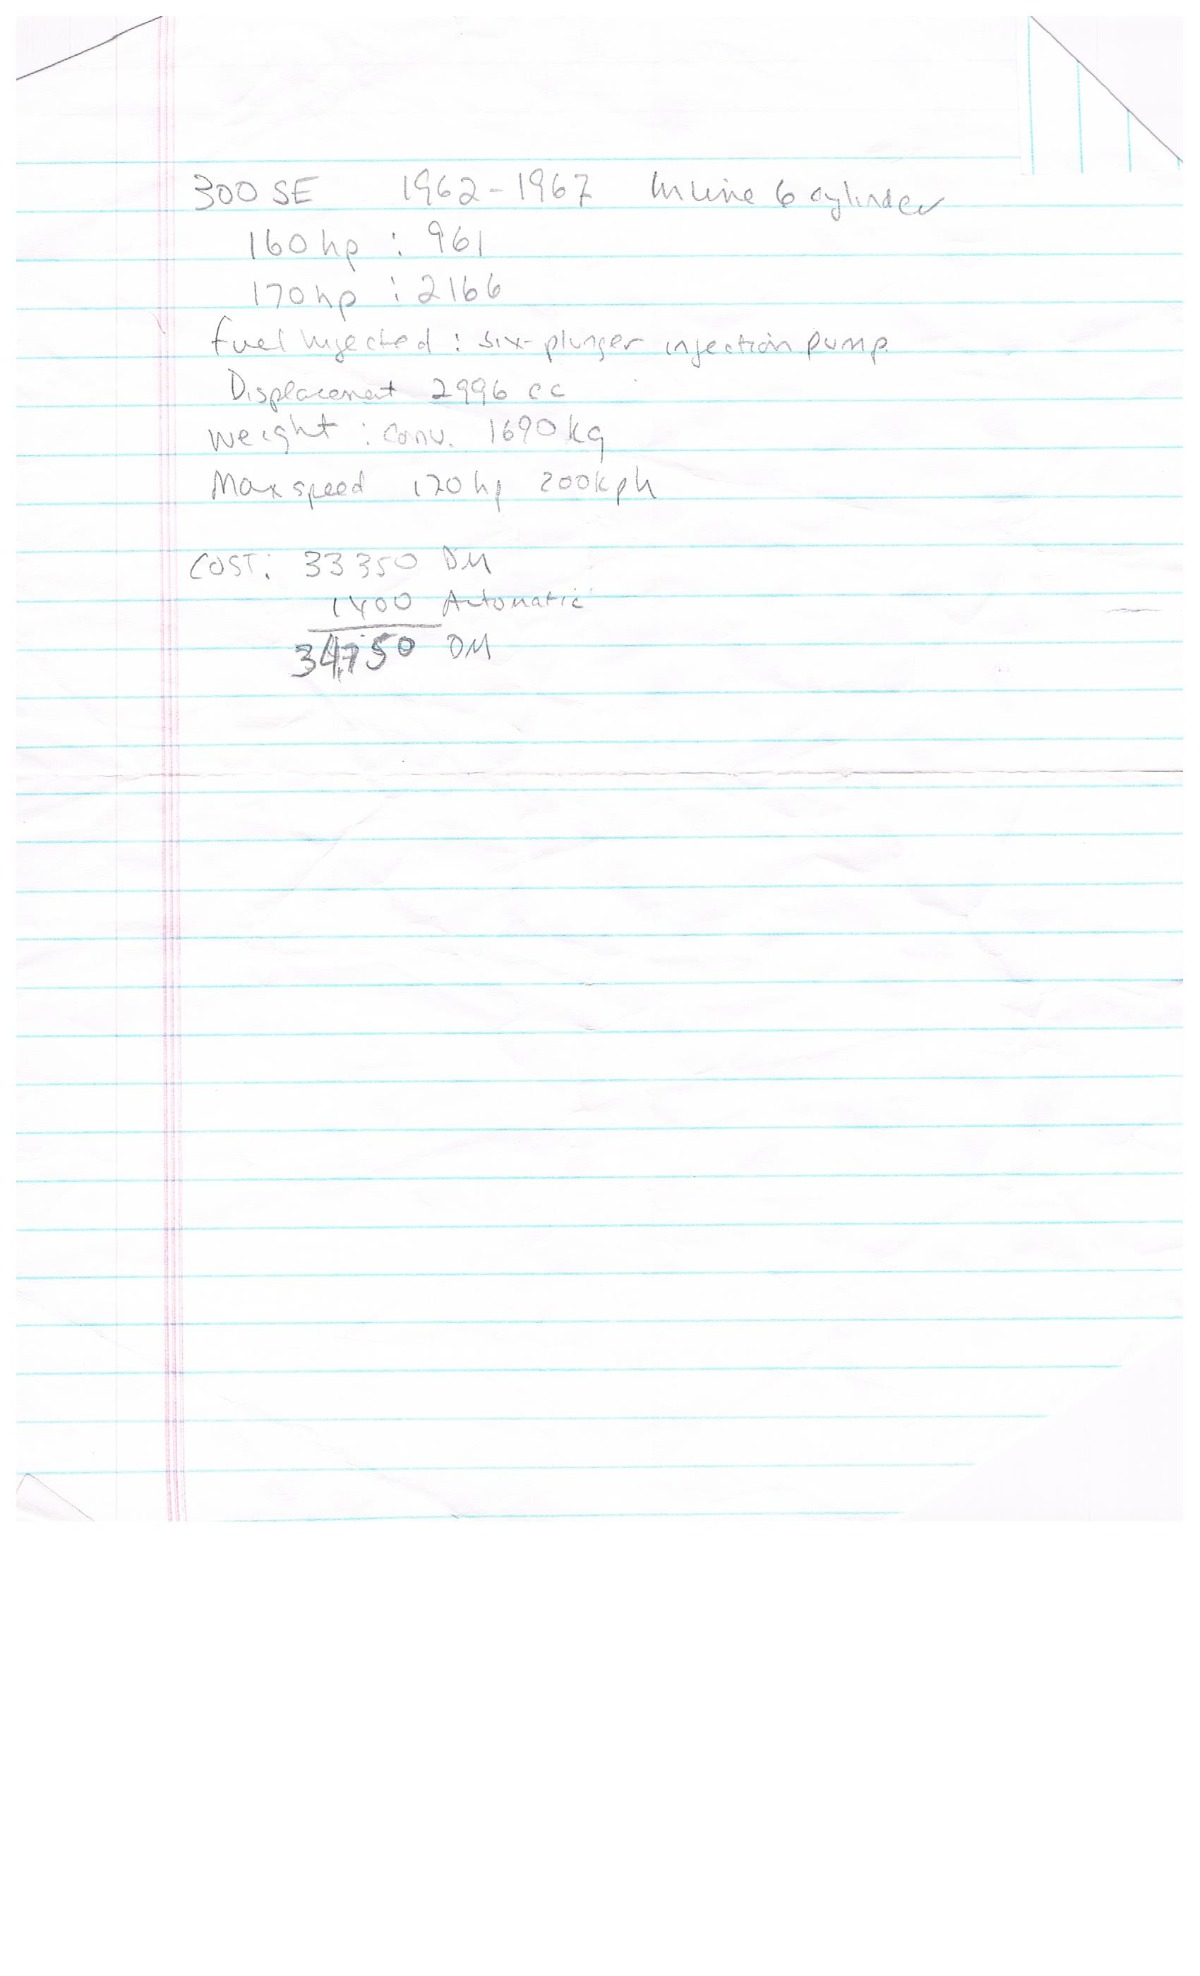 300 SE 1962-1967 Inline 6 cylinder
160 hp : 961
170 hp : 2166
fuel injected : six-plunger injection pump.
Displacement 2996 cc
weight : conv. 1690 kg
Max speed 170 hp 200 kph
COST: 33350 DM
1400 Automatic
34,750 DM